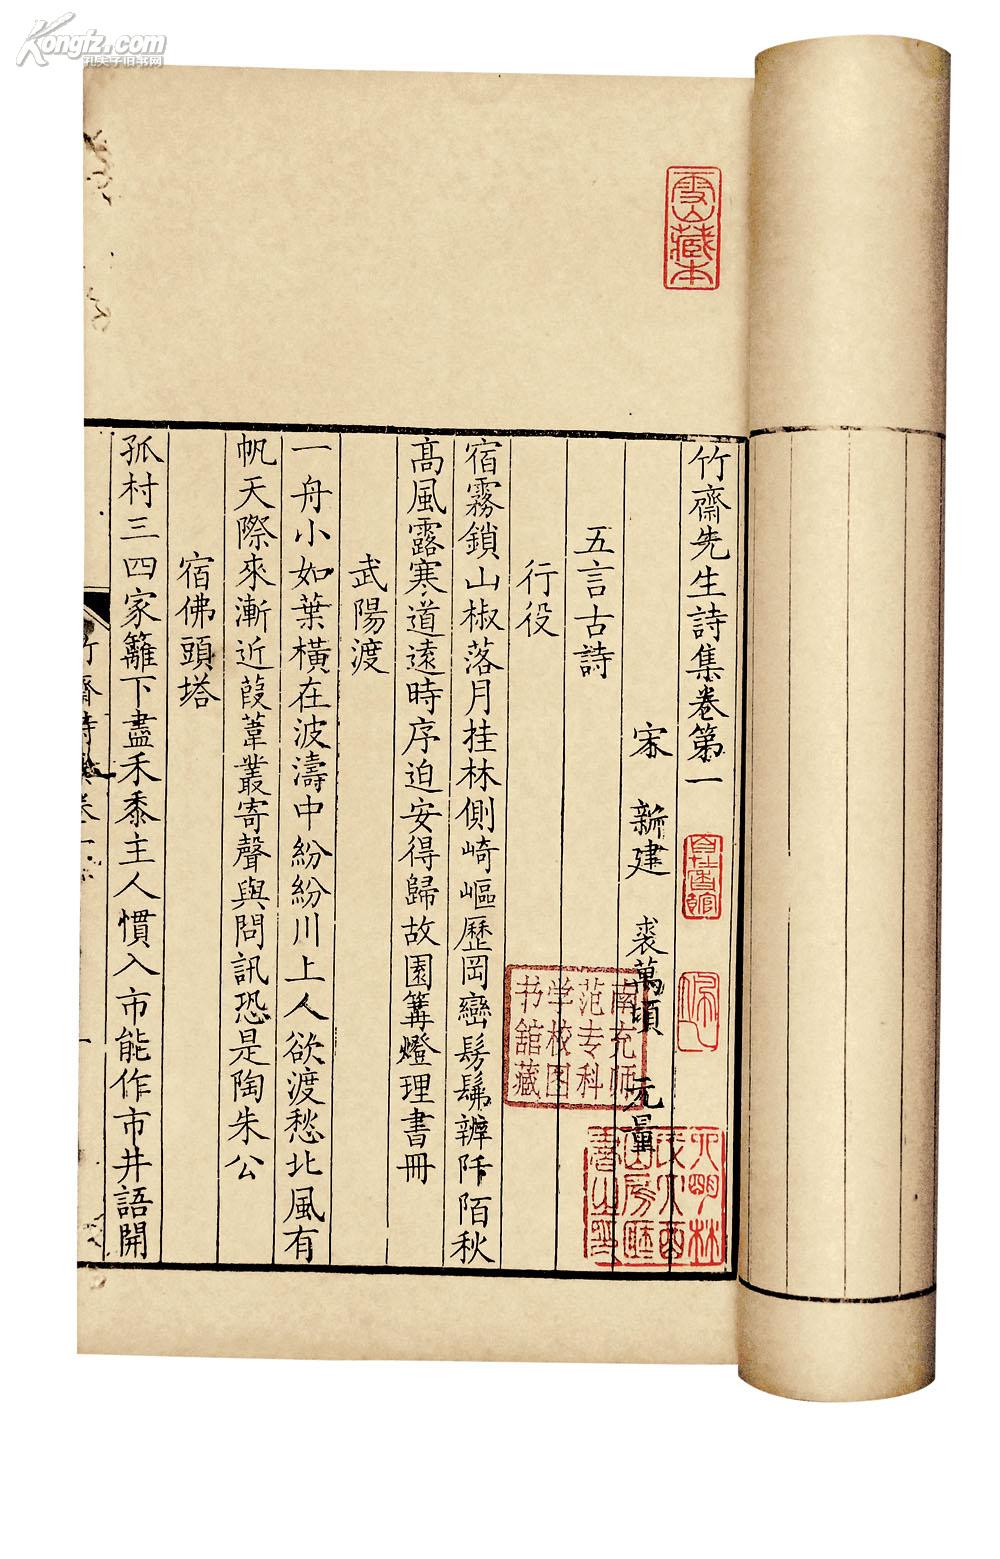 Kongfz.com
孔夫子旧书网
雪山藏本
竹齋先生詩集卷第一
宋 新建 裘萬頃 元量
五言古詩
行役
宿霧鎖山椒落月挂林側崎嶇歷岡巒髣髴辨阡陌秋
高風露寒道遠時序迫安得歸故園篝燈理書冊
武陽渡
一舟小如葉橫在波濤中紛紛川上人欲渡愁北風有
帆天際來漸近葭葦叢寄聲與問訊恐是陶朱公
宿佛頭塔
孤村三四家籬下盡禾黍主人慣入市能作市井語開
竹齋詩集卷一
南充师
范专科
学校图
书舘藏